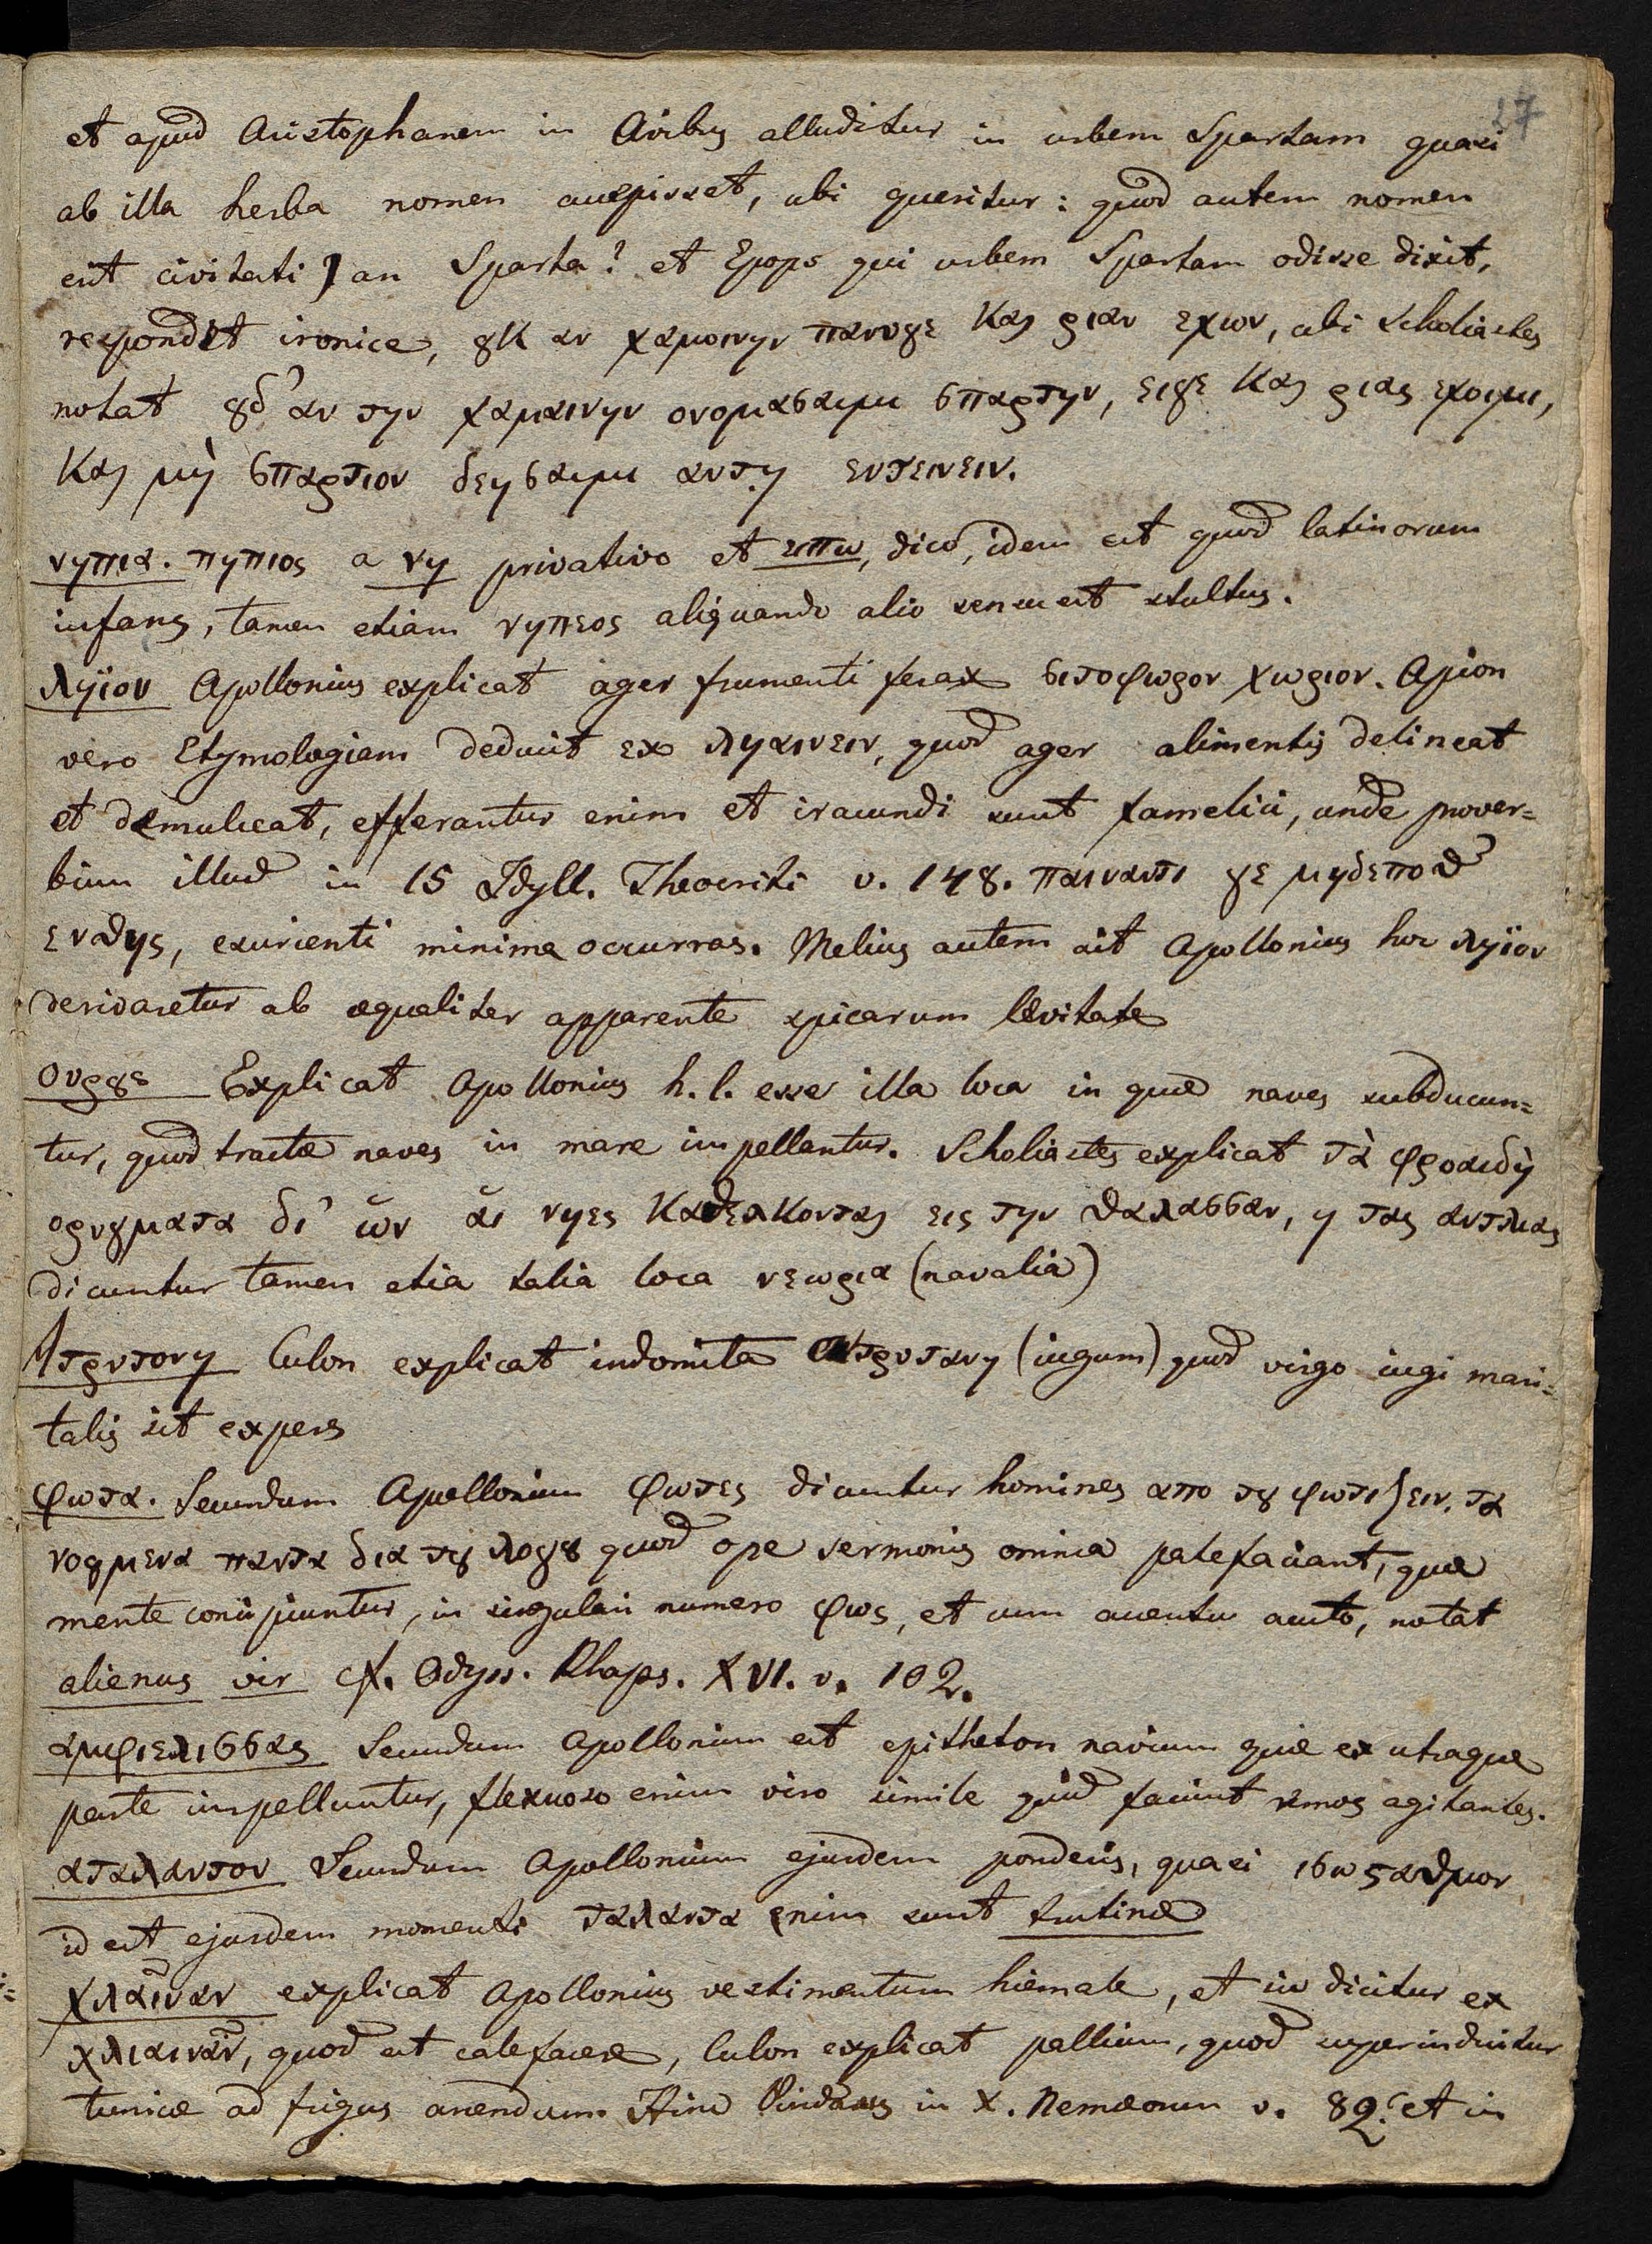 27
et apud Aristophanem in Avibus alluditur in urbem Spartam quasi
ab illa herba nomen accepisset, ubi queritur: quod autem nomen
erit civitati, an Sparta? et Epops qui urbem Spartam odisse dixit,
respondet ironice, ȣκ αν χαμοινην πανυγε και γιαν εχων, ubi Scholiastes
notat ȣδ' αν την χαμαινην ονομασαιμι σπαρτην, ειγε και ριας εχοιμι,
και μὴ σπαρτιον δεησαιμι αντῃ εντεινειν.
νηπια. νηπιος a νη privativo et επω, dico, idem est quod latinorum
infans, tamen etiam νηπεος aliquando alio sensu est stultus.
ληϊον Apollonius explicat ager frumenti ferax σιτοφωρον χωριον. Apion
vero Etymologiam deducit ex ληαινειν, quod ager alimentis delineat
et demulceat, efferantur enim et iracundi sunt famelici, unde prover=
bium illud in 15 Idyll. Theocriti v. 148. παιναντι γε μηδεποθ'
ενθης, esurienti minime occurras. Melius autem ait Apollonius hoc ληϊον
derivaretur ab æqualiter apparente spicarum lævitate
Ουρȣς Explicat Apollonius h. l. esse illa loca in quæ naves subducun=
tur, quod tractæ naves in mare impellantur. Scholiastes explicat τὰ φροαιδῆ
ορυγματα δι' ὧν ἁι νηες καθελκονται εις την θαλασσαν, η τας αντλιας
dicuntur tamen etia talia loca νεωρια (navalia)
Ατρυτονη Culon explicat indomita Ατρυτανη (iugum) quod virgo iugi mari=
talis sit expers
φωτα. Secundum Apollonium φωτες dicuntur homines απο τȣ φωτιζειν. τα
νοȣμενα παντα δια τȣ λογȣ quod ope sermonis omnia patefaciant, quæ
mente concipiuntur, in singulari numero φως, et cum accentu acuto, notat
alienus vir cf. Odyss. Rhaps. XVI. v. 102.
αμφιελισσας Secundum Apollonium est epitheton navium quæ ex utraque
parte impelluntur, flexuoso enim viro simile quid faciunt remos agitantes.
αταλαντον Secundum Apollonium ejusdem ponderis, quasi ισωςαθμον
id est ejusdem momenti ταλαντα enim sunt trutinæ
χλαιναν explicat Apollonius vestimentum hiemale, et sic dicitur ex
χλιαιναν, quod est calefacere, Culon explicat pallium, quod superinduitur
tunicæ ad frigus arcendum Hinc Pindarus in X. Nemæorum v. 82. et in